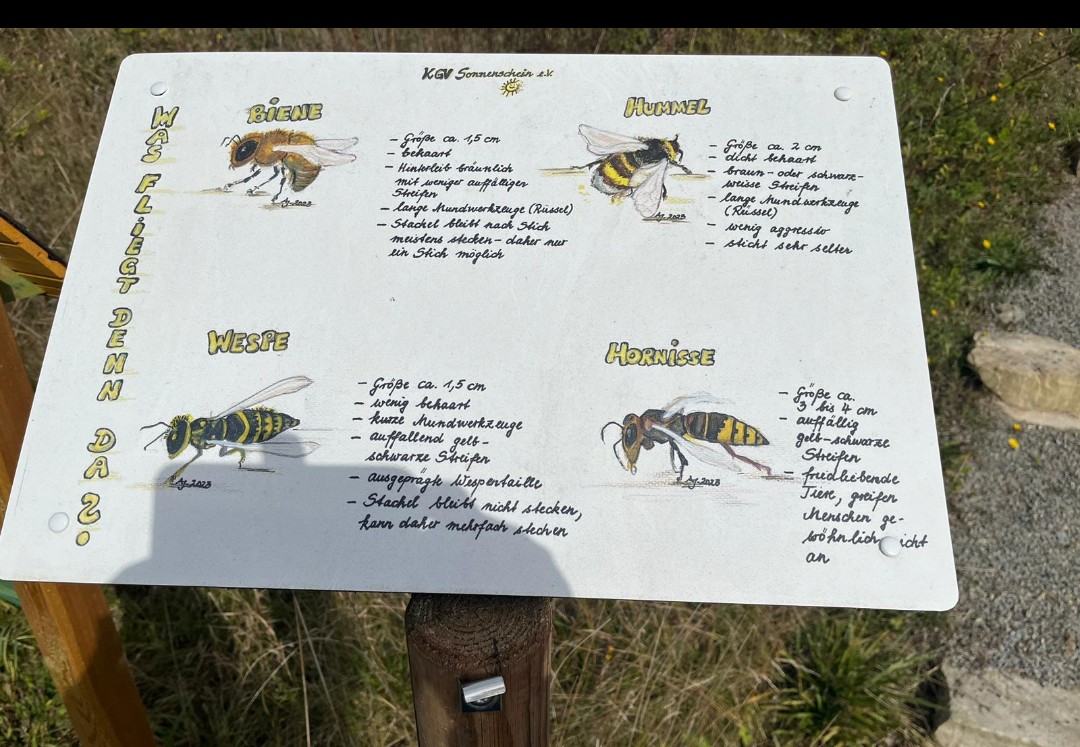 KGV Sonnenschein e.V.
WAS FLIEGT DENN DA?
BIENE
- Größe ca. 1,5 cm
- behaart
- Hinterleib bräunlich
mit weniger auffälligen
Streifen
- lange Mundwerkzeuge (Rüssel)
- Stachel bleibt nach Stich
meistens stecken - daher nur
ein Stich möglich
2023
HUMMEL
- Größe ca. 2 cm
- dicht behaart
- braun- oder schwarz-
weisse Streifen
- lange Mundwerkzeuge
(Rüssel)
- wenig aggressiv
- sticht sehr selten
2023
WESPE
- Größe ca. 1,5 cm
- wenig behaart
- kurze Mundwerkzeuge
- auffallend gelb-
schwarze Streifen
- ausgeprägte Wespentaille
- Stachel bleibt nicht stecken,
kann daher mehrfach stechen
2023
HORNISSE
- Größe ca.
3 bis 4 cm
- auffällig
gelb-schwarze
Streifen
- friedliebende
Tiere, greifen
Menschen ge-
wöhnlich icht
an
2023